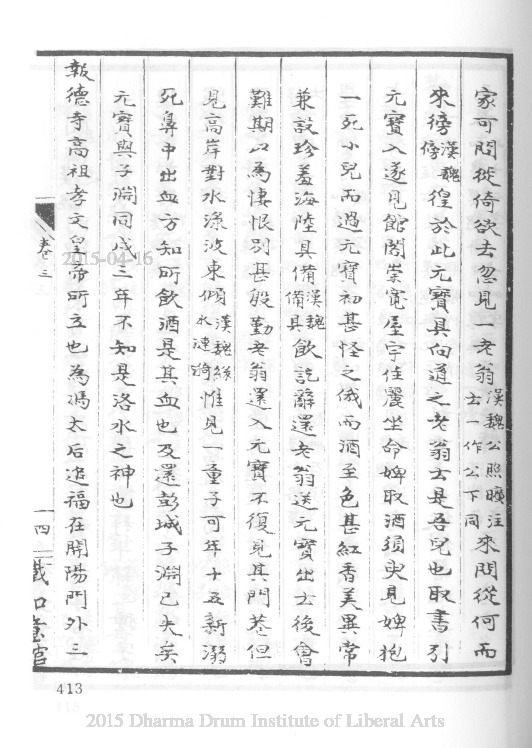 家可問徙倚欲去忽見一老翁漢魏公照曠注士一作公下同來問從何而
來徬漢魏傍徨於此元寶具向道之老翁云是吾兒也取書引
元寶入遂見館閣崇寬屋宇佳麗坐命婢取酒須臾見婢抱
一死小兒而過元寶初甚怪之俄而酒至色甚紅香美異常
兼設珍羞海陸具備漢魏備具飲訖辭還老翁送元寶出云後會
難期以為悽恨別甚殷勤老翁還入元寶不復見其門巷但
見高岸對水淥波東傾漢魏綠水漣漪惟見一童子可年十五新溺
死鼻中出血方知所飲酒是其血也及還彭城子淵已失矣
元寶與子淵同戍三年不知是洛水之神也
報德寺高祖孝文皇帝所立也為馮太后追福在開陽門外三
卷三
一四
413
2015-04-16
2015 Dharma Drum Institute of Liberal Arts